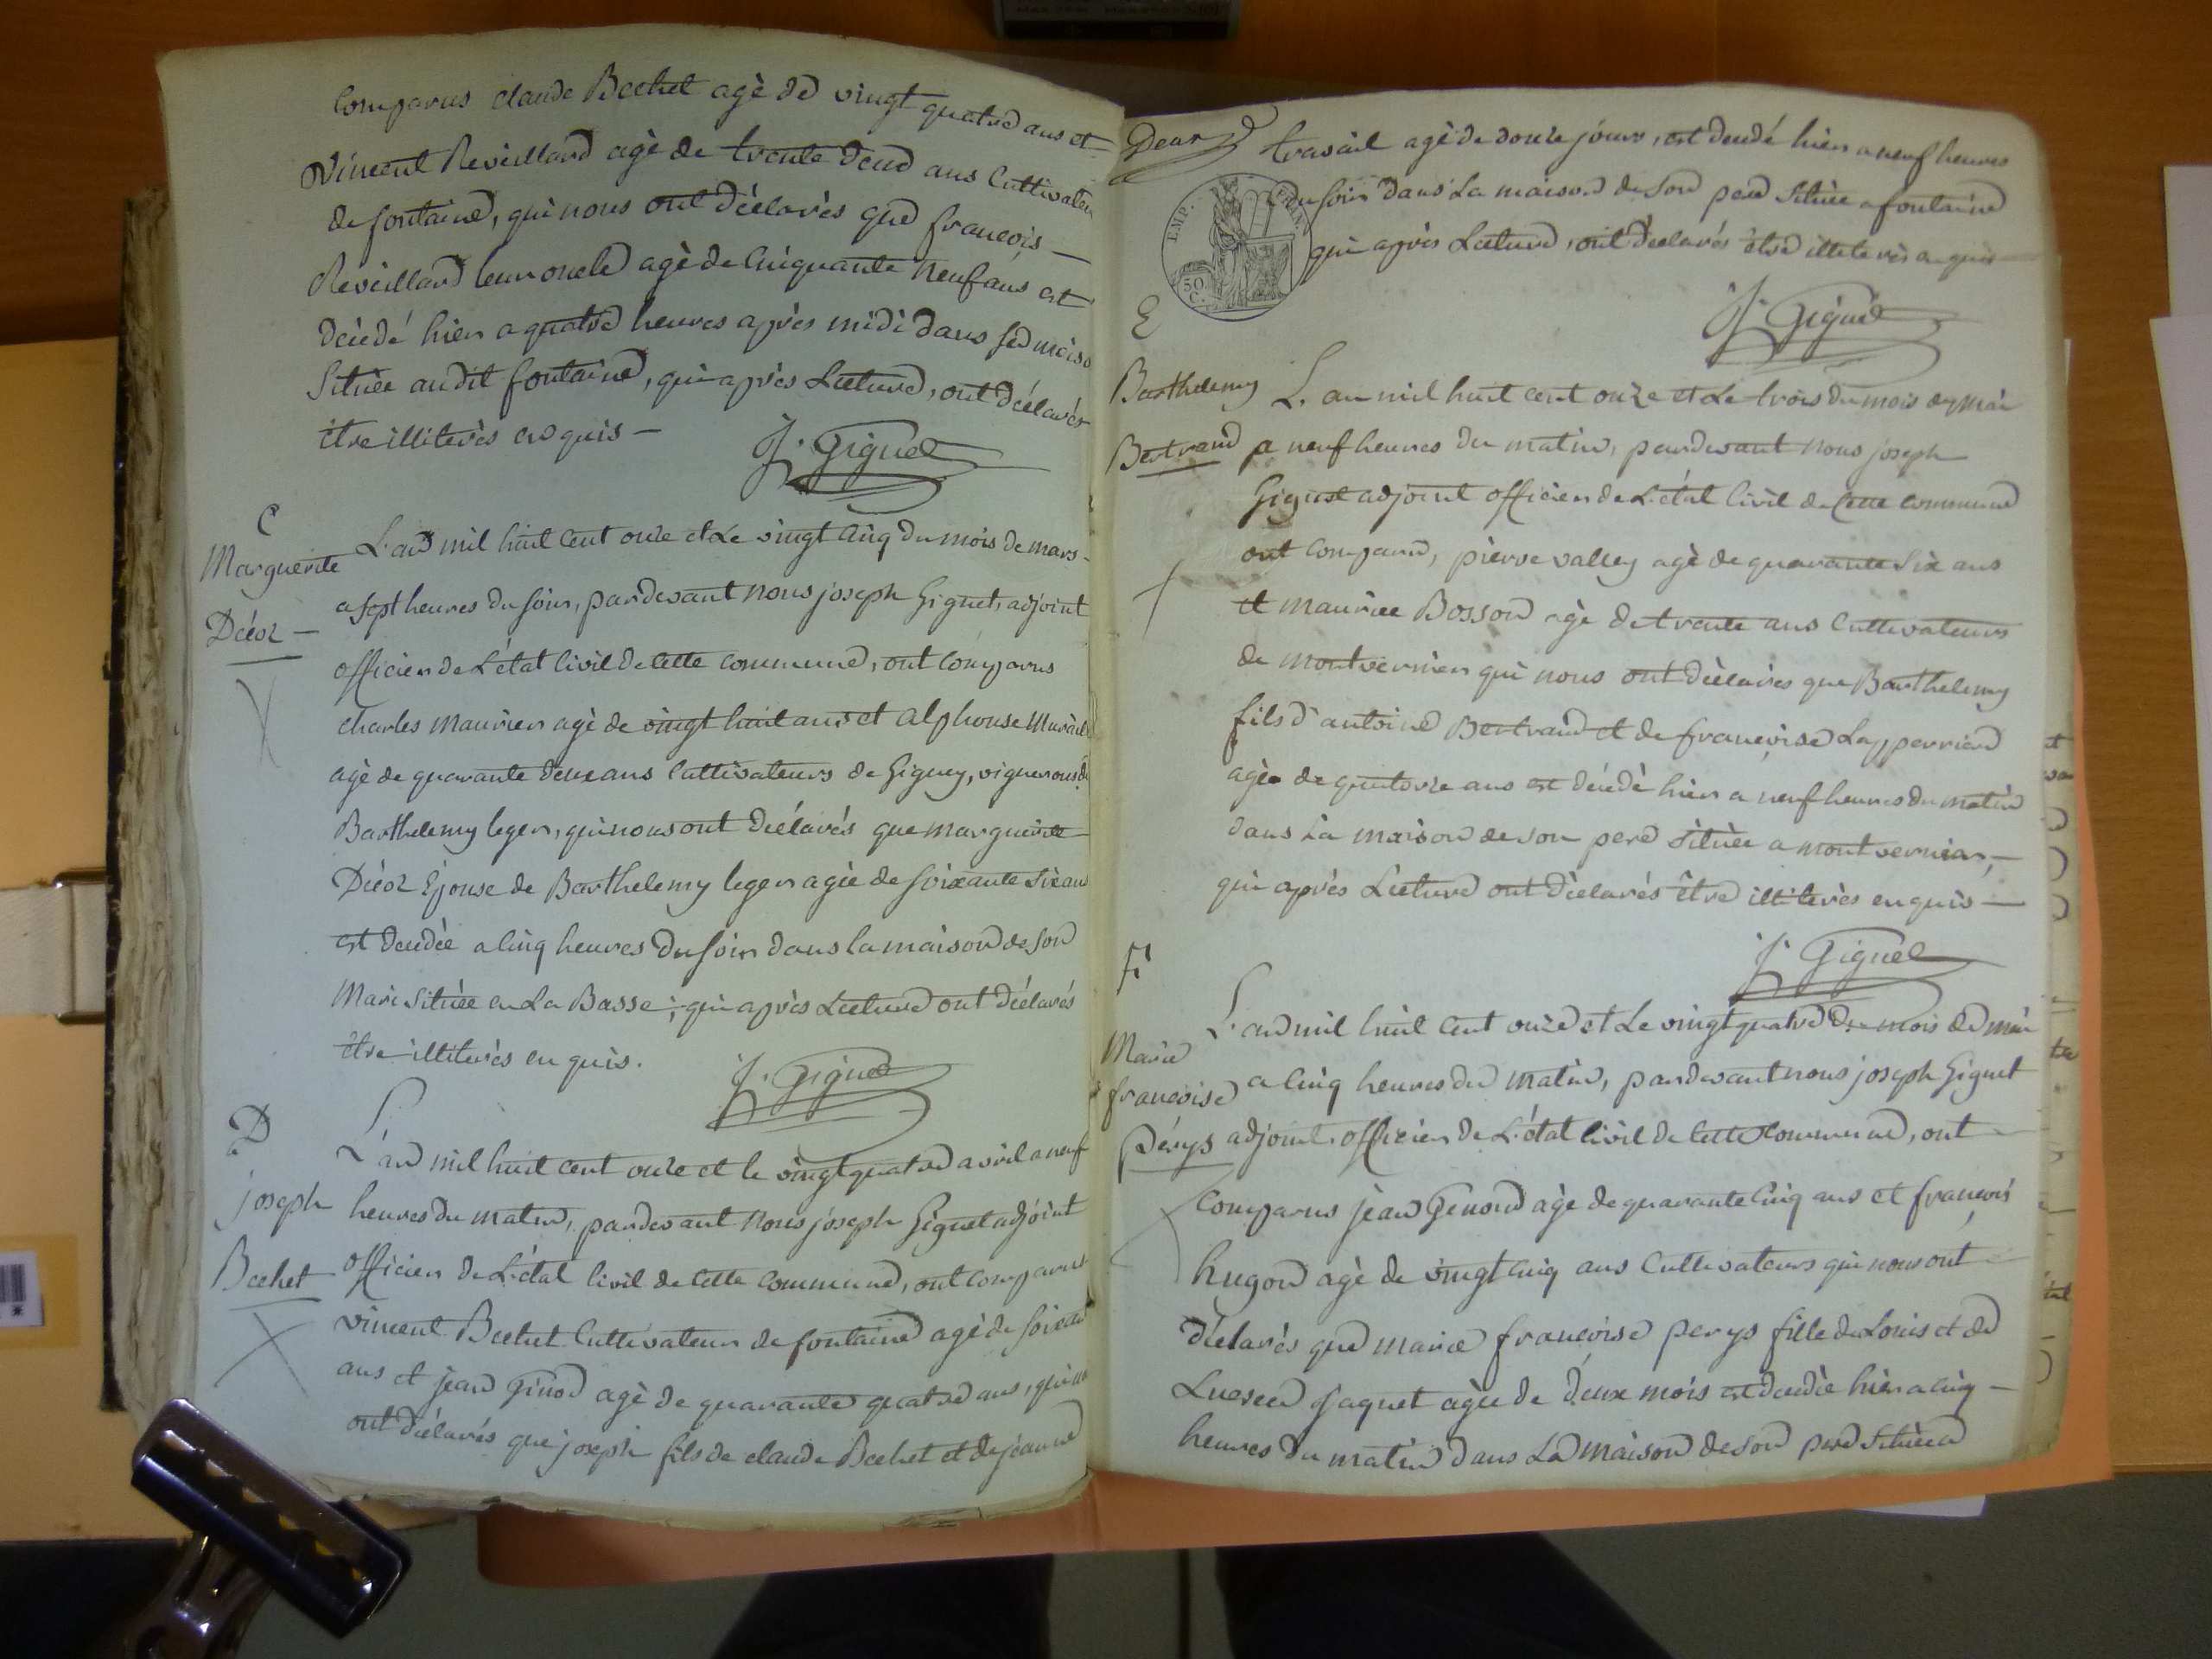 Comparus claude Bechet agè de vingt quatre ans et
Vincent Reveillard agè de trente deux ans Cultivateu
de fontaine, qui nous ont déclarés que francois
Reveillard leur oncle agè de Cinquante neuf ans est
décédé hier a quatre heures après midi dans sa maiso
Située audit fontaine, qui après Lecture, ont déclarés
être illiterés enquis
J. Giguet
C
Marguerite
Décoz
L'an mil huit cent onze et Le vingt Cinq du mois de mars
a sept heures du soir, pardevant nous joseph Giguet, adjoint
officier de L'état Civil de Cette Commune, ont Comparus
Charles Maurier agè de vingt huit ans et alphonse
agè de quarante deux ans Cultivateurs de Gigney, vignerons de
Barthelemy leger, qui nous ont déclarés que marguerite
Décoz Epouse de Barthelemy leger agée de soixante six ans
est decédée a Cinq heures du soir dans la maison de son
Mari Située en La Basse ; qui après Lecture ont déclarés
être illiterés enquis.
J. Giguet
D
joseph
Bechet
L'an mil huit cent onze et le vingt quatre avril a neuf
heures du matin, pardevant nous joseph Giguet adjoint
officier de L'état Civil de Cette Commune, ont Comparus
vincent Bechet Cultivateur de fontaine agè de soixante
ans et jean Ginod agè de quarante quatre ans, qui no
ont déclarés que joseph fils de claude Bechet et de jeanne
travail agè de douze jours, est decédé hier a neuf heures
du soir dans La maison de son pere Située a fontaine
EMP. FRAN.
50 C.
qui après Lecture, ont déclarés être illiterés enquis
J. Giguet
E
Barthelemy
Bertrand
L'an mil huit cent onze et Le trois du mois de mai
a neuf heures du matin, pardevant nous joseph
Giguet adjoint officier de L'état Civil de Cette Commune
ont Comparu, pierre valley agè de quarante Six ans
et maurice Bosson agè de trente ans Cultivateurs
de montvernier qui nous ont déclarés que Barthelemy
fils d'antoine Bertrand et de francoise Lapperriere
agée de quatorze ans est décédé hier a neuf heures du matin
dans La maison de son pere Située a montvernier,
qui après Lecture ont déclarés être illiterés enquis
J. Giguet
F
Marie
francoise
Pérys
L'an mil huit Cent onze et Le vingt quatre du mois de mai
a Cinq heures du matin, pardevant nous joseph Giguet
adjoint, officier de L'état Civil de Cette Commune, ont
Comparus jean Genoud agè de quarante Cinq ans et francois
hugon agè de vingt Cinq ans Cultivateurs qui nous ont
déclarés que marie francoise perys fille de Louis et de
Lucrece jaquet agée de deux mois est decédée hier a Cinq
heures du matin dans La maison de son pere Située a